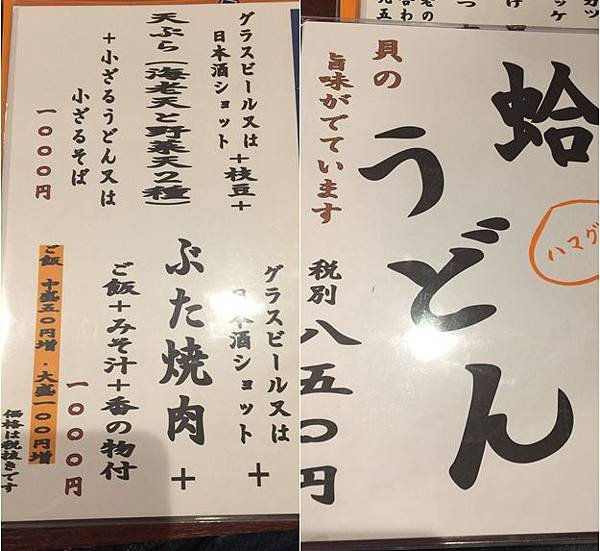 グラスビール又は
日本酒ショット
＋枝豆＋
天ぷら(海老天と野菜天2種)
＋小ざるうどん又は
小ざるそば
一〇〇〇円
グラスビール又は
日本酒ショット
＋
ぶた焼肉＋
ご飯＋みそ汁＋香の物付
一〇〇〇円
ご飯 中盛五〇円増・大盛一〇〇円増
価格は税抜きです
蛤
うどん
ハマグ
貝の
旨味がでています
税別
八五〇円